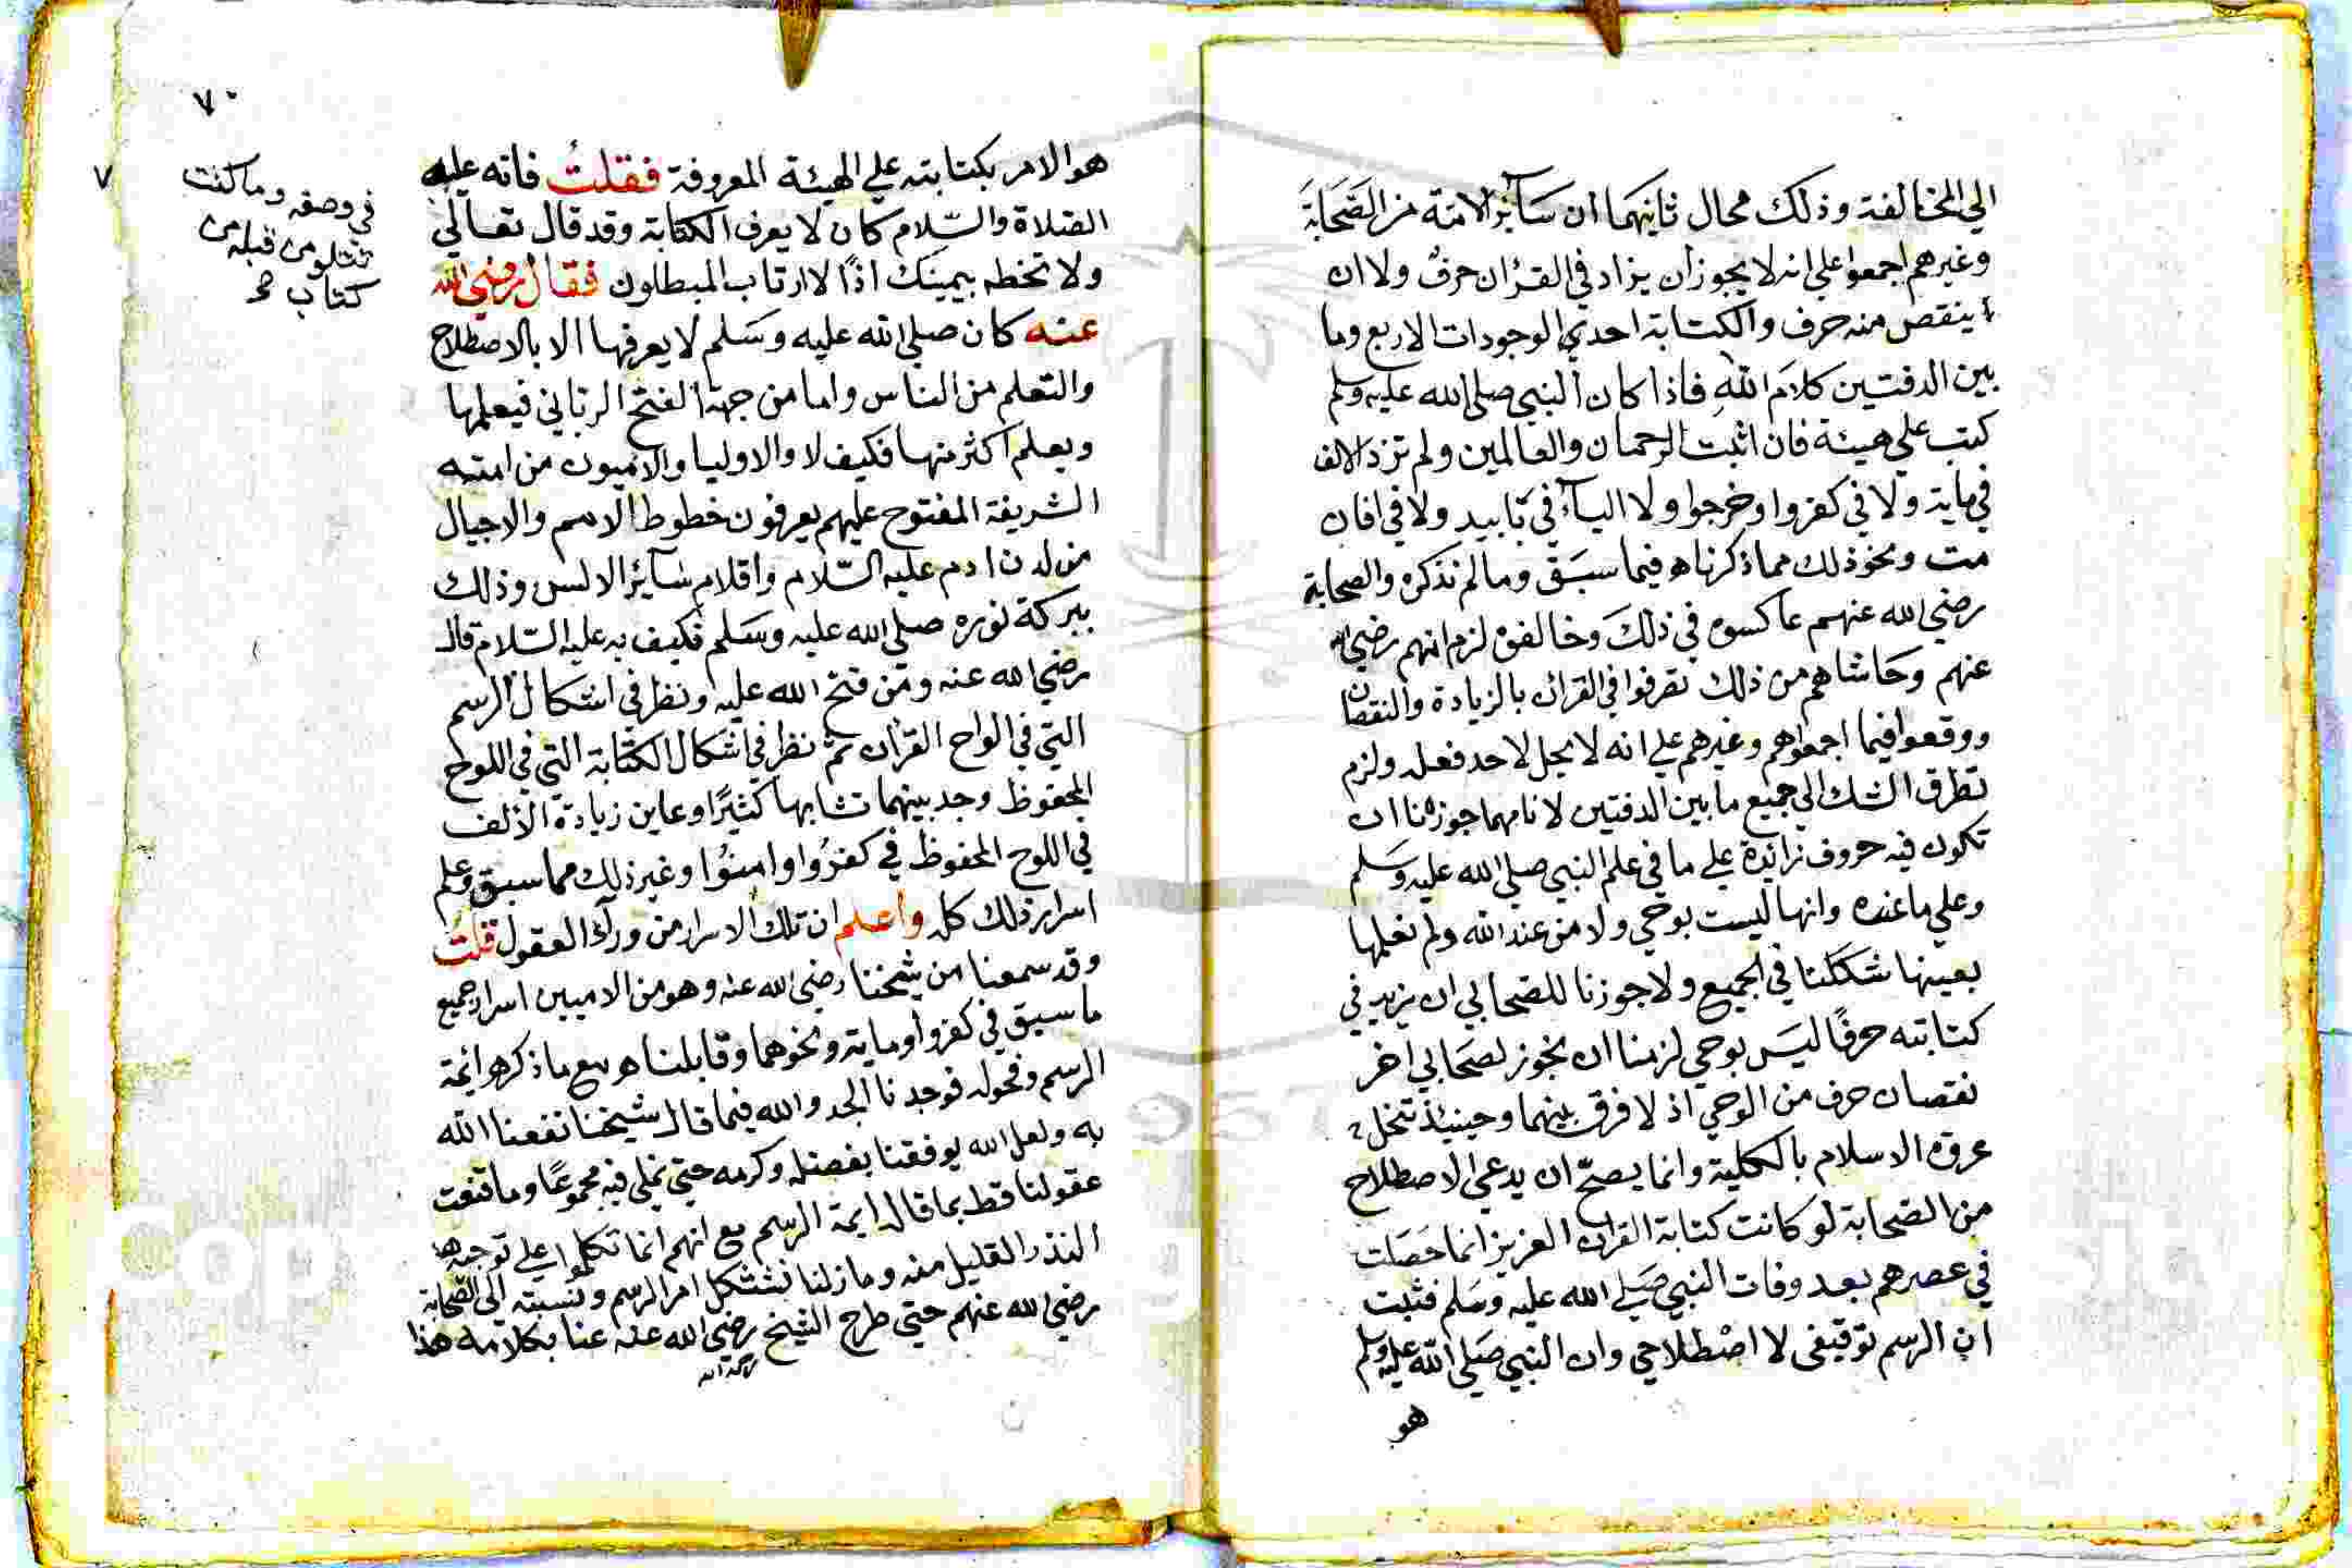 الي المخالفة وذلك محال ثانيهما ان سآئر الامة من الصحابة
وغيرهم اجمعوا علي انه لا يجوز أن يزاد في القرأن حرف ولا ان
ينقص منه حرف والكتابة احدي الوجودات الاربع وما
بين الدفتين كلام الله فاذا كان النبي صلي الله عليه وسلم
كتب علي هيئة فان اثبت الرحمان والعالمين ولم تزد الالف
في ماية ولا في كفروا وخرجوا ولا اليآء في تأبيد ولا في افان
مت ونحو ذلك مما ذكرناه فيما سبق وما لم نذكره والصحابة
رضي الله عنهم عاكسوه في ذلك وخالفوه لزم انهم رضي الله
عنهم وحاشاهم من ذلك تصرفوا في القرآن بالزيادة والنقصان
ووقعوا فيما اجمعوا هم وغيرهم علي انه لا يحل لاحد فعله ولزم
تطرق الشك الي جميع ما بين الدفتين لانا مهما جوزنا ان
تكون فيه حروف زائدة علي ما في علم النبي صلي الله عليه وسلم
وعلي ما عنده وانها ليست بوحي ولا من عند الله ولم نعلمها
بعينها شككنا في الجميع ولا جوزنا للصحابي ان يزيد في
كتابته حرفًا ليس بوحي لزمنا ان نجوز لصحابي اخر
نقصان حرف من الوحي اذ لا فرق بينهما وحينئذ تنحل
عروة الاسلام بالكلية وانما يصحّ ان يدعي الاصطلاح
من الصحابة لو كانت كتابة القران العزيز انما حصلت
في عصرهم بعد وفات النبي صلي الله عليه وسلم فثبت
ان الرسم توقيفى لا اصطلاحي وان النبي صلي الله عليه وسلم
هو
٧٠
هو الامر بكتابته علي الهيئة المعروفة فقلتُ فانه عليه
الصلاة والسّلام كان لا يعرف الكتابة وقد قال تعالي
ولا تخطه بيمينك اذًا لارتاب المبطلون فقال رضي الله
عنه كان صلي الله عليه وسلم لا يعرفها الا بالاصطلاح
والتعلم من الناس واما من جهة الفتح الرباني فيعلمها
ويعلم اكثر منها فكيف لا والاوليا والاميون من امته
الشريفة المفتوح عليهم يعرفون خطوط الامم والاجيال
من لدن ادم عليه السّلام واقلام سآئر الالسن وذلك
ببركة نوره صلي الله عليه وسلم فكيف به عليه السّلام قال
رضي الله عنه ومن فتح الله عليه ونظر في اشكال الرسم
التي في الواح القرآن ثم نظر في اشكال الكتابة التي في اللوح
المحفوظ وجد بينهما تشابها كثيرًا وعاين زيادة الألف
في اللوح المحفوظ في كفرُوا وامنوُا وغير ذلك مما سبق وعلم
اسرار ذلك كله واعلم ان تلك الاسرار من ورآء العقول قلتُ
وقد سمعنا من شيخنا رضي الله عنه وهو من الاميين اسرار جميع
ما سبق في كفروا وماية ونحوهما وقابلناه مع ما ذكره ائمة
الرسم وفحوله فوجدنا الجد والله فيما قال شيخنا نفعنا الله
به ولعل الله يوفقنا بفضله وكرمه حتي نملي فيه مجموعًا وما قنعت
عقولنا قط بما قاله ايمة الرسم مع انهم انما تكلموا علي توجيه
النذر القليل منه وما زلنا نشتكل امر الرسم ونسبته الي الصحابة
رضي الله عنهم حتي طرح الشيخ رضي الله عنه عنا بكلامه هذا
رحمه الله
٧
في وصفه وما كنت
تتلو من قبله من
كتاب صح